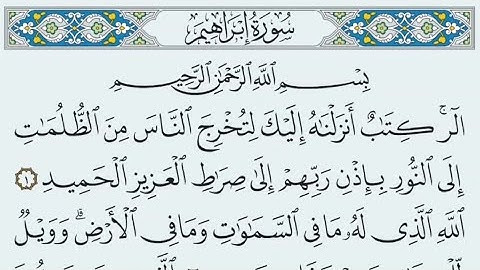 سُورَةُ إِبْرَاهِيمَ
بِسْمِ ٱللَّهِ ٱلرَّحْمَٰنِ ٱلرَّحِيمِ
الٓرۚ كِتَٰبٌ أَنزَلْنَٰهُ إِلَيْكَ لِتُخْرِجَ ٱلنَّاسَ مِنَ ٱلظُّلُمَٰتِ
إِلَى ٱلنُّورِ بِإِذْنِ رَبِّهِمْ إِلَىٰ صِرَٰطِ ٱلْعَزِيزِ ٱلْحَمِيدِ ١
ٱللَّهِ ٱلَّذِي لَهُۥ مَا فِي ٱلسَّمَٰوَٰتِ وَمَا فِي ٱلْأَرْضِۗ وَوَيْلٌ